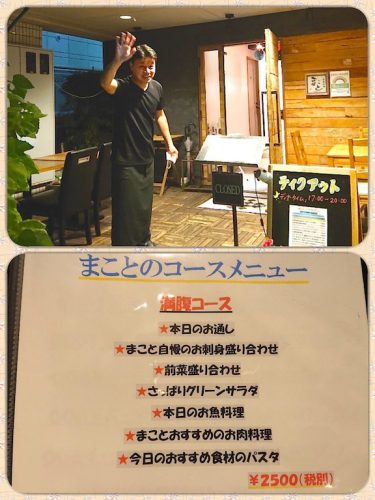 CLOSED
テイクアウト
ディナータイム、17:00〜20:00
まことのコースメニュー
満腹コース
★本日のお通し
★まこと自慢のお刺身盛り合わせ
★前菜盛り合わせ
★さっぱりグリーンサラダ
★本日のお魚料理
★まことおすすめのお肉料理
★今日のおすすめ食材のパスタ
￥2500(税別)